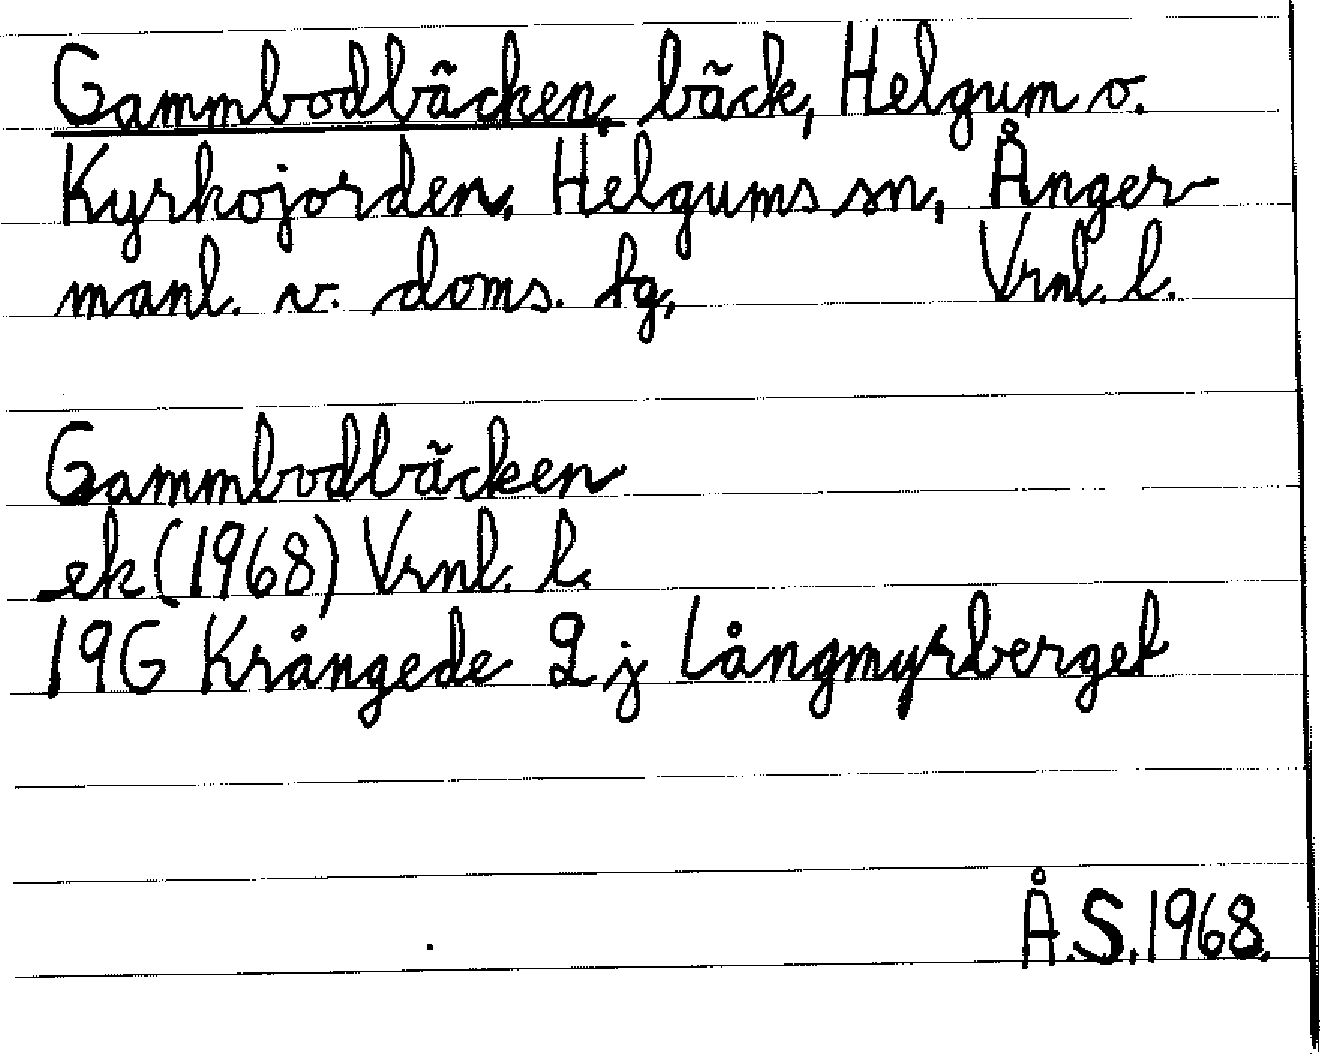 Gammbodbäcken, bäck, Helgum o.
Kyrkojorden, Helgums sn, Ånger-
manl. v. doms. tg, Vrnl. l.
Gammbodbäcken
ek (1968) Vrnl. l.
19G Krångede 2 j Långmyrberget
Å.S. 1968.